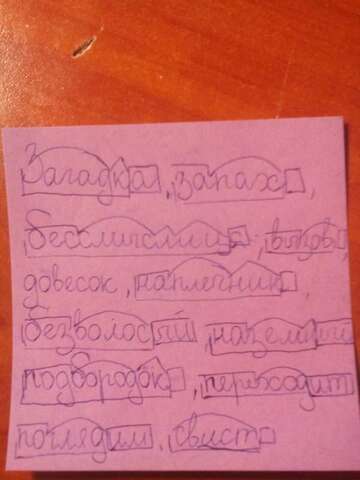 Загадка, запах,
бессмыслица, вызов,
довесок, наплечник,
безволосый, наземный
подбородок, переходит
поглядим, свист